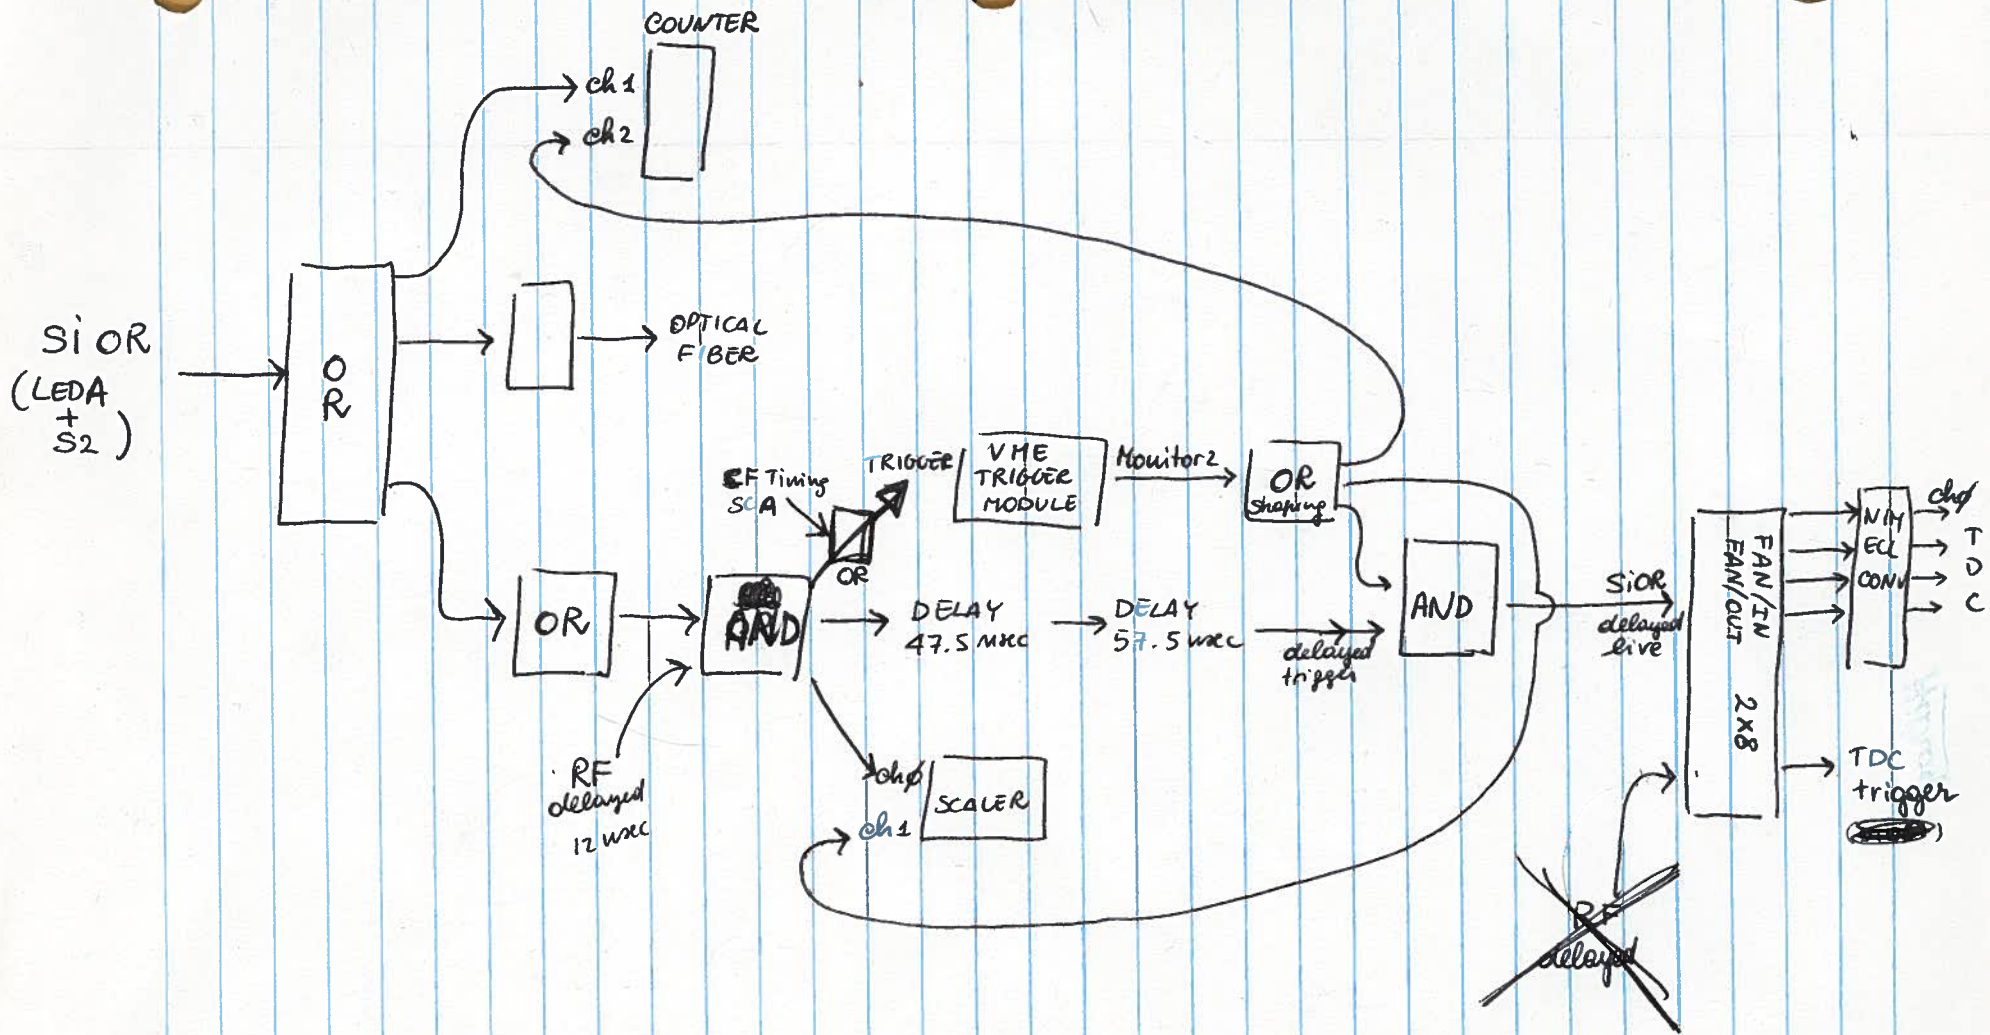 COUNTER
ch1
ch2
SiOR
(LEDA
+
S2)
OR
OPTICAL
FIBER
CF Timing
SCA
OR
TRIGGER
VME
TRIGGER
MODULE
Monitor2
OR
shaping
OR
AND
DELAY
47.5 nsec
DELAY
57.5 nsec
delayed
trigger
AND
SiOR
delayed
live
FAN/IN
FAN/OUT
2x8
NIM
ECL
CONV
chø
T
D
C
TDC
trigger
RF
delayed
12 nsec
chø
ch1
SCALER
RF
delayed